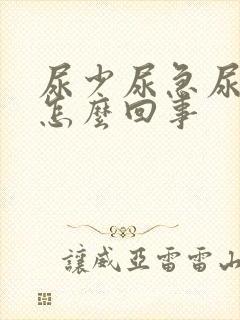 尿少尿急尿
怎麼回事
讓威亞雷雷山